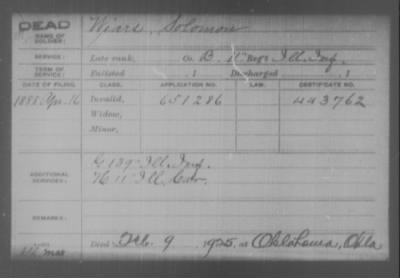 DEAD
NAME OF SOLDIER: Wiars, Solomon
SERVICE: Late rank, Co. B, 11" Reg't Ill. Inf.
TERM OF SERVICE: Enlisted , 1 Discharged , 1
DATE OF FILING. CLASS. APPLICATION NO. LAW. CERTIFICATE NO.
1888 Apr. 16 Invalid, 651286 443762
Widow,
Minor,
G 139" Ill. Inf.
ADDITIONAL SERVICES: H 11" Ill. Cav.
REMARKS:
Died Feb. 9 1925 at Oklahoma, Okla